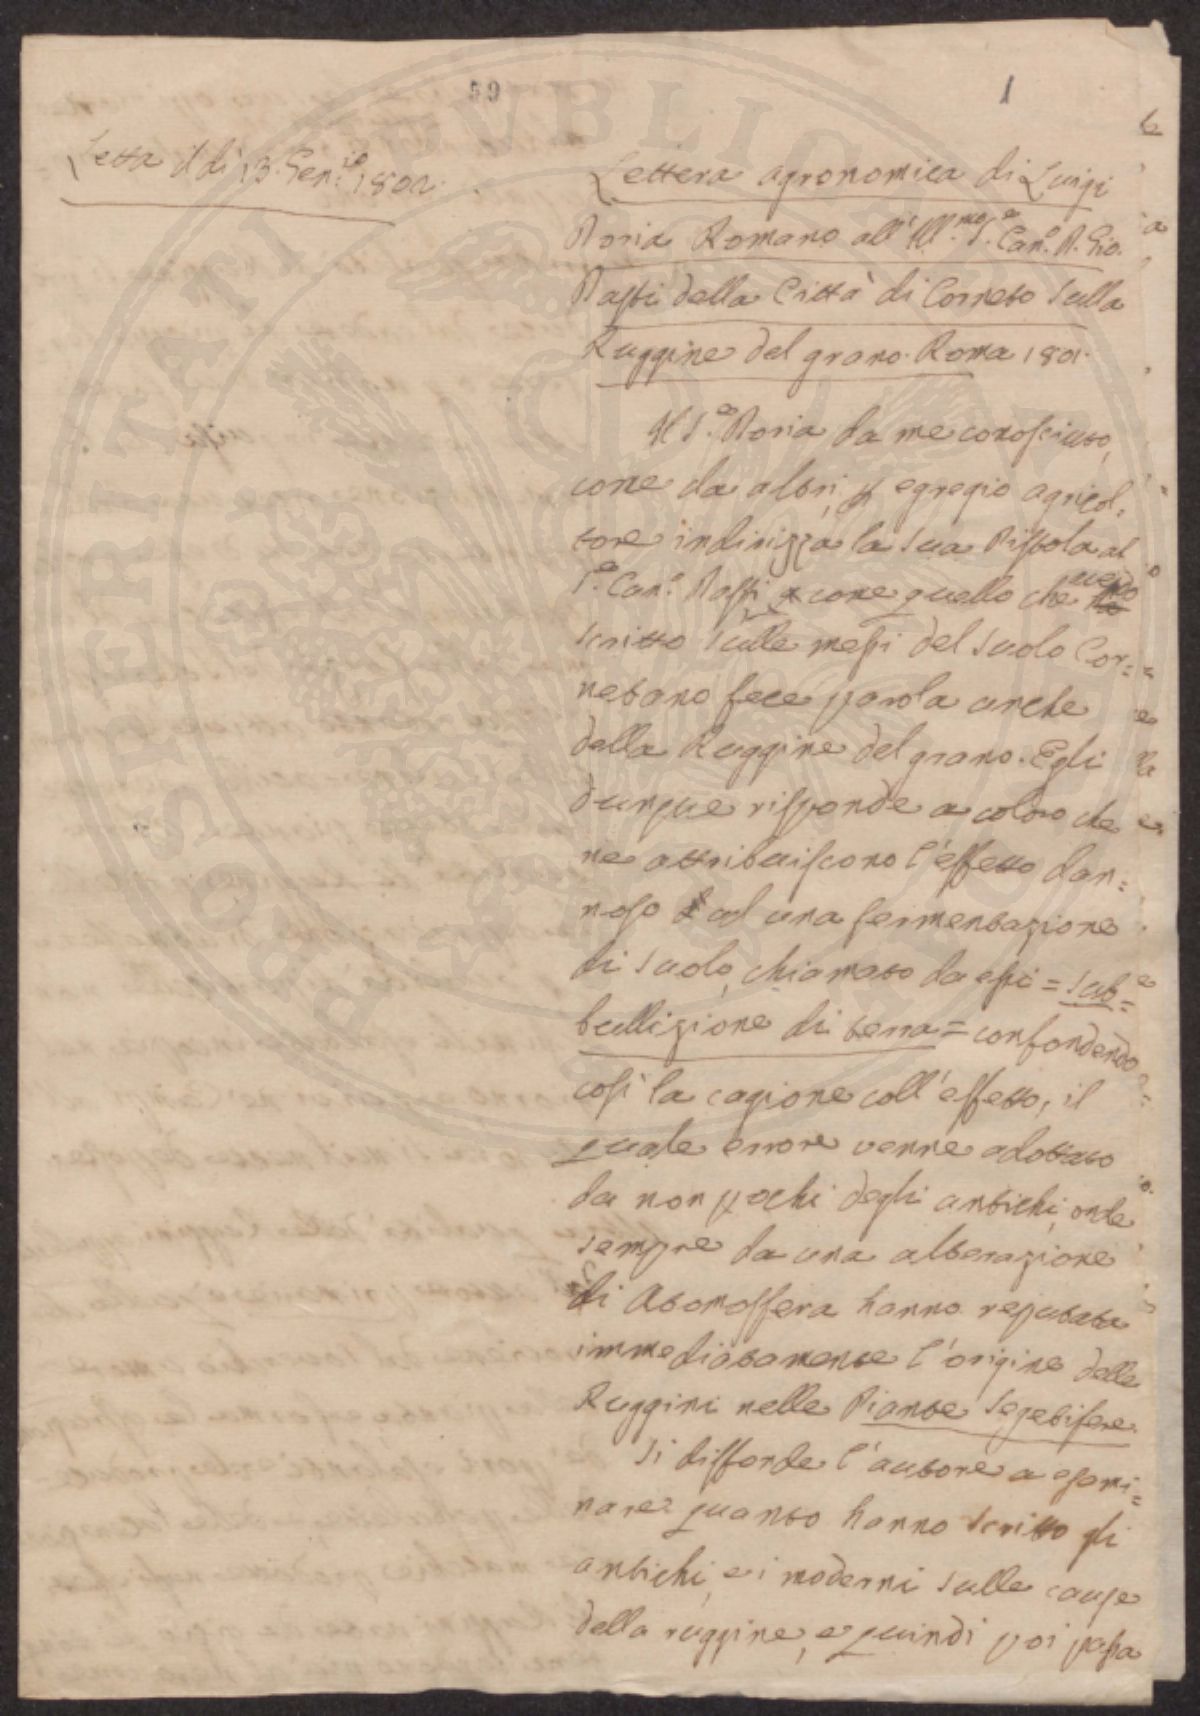 59
1
Letta il dì 13. Gen.io 1802.
Lettera agronomica di Luigi
Doria Romano all'Ill.mo S.e Can.o D. Gio.
Dasti della Città di Corneto sulla
Ruggine del grano. Roma 1801.
Il S.e Doria da me conosciuto,
come da altri, p egregio agricol=
tore indirizza la sua Pistola al
S.e Can.o Dasti, come quello che avendo
scritto sulle messi del suolo Cor=
netano fece parola anche
della Ruggine del grano. Egli
dunque risponde a coloro che
ne attribuiscono l'effetto dan=
noso ad una fermentazione
di suolo, chiamato da essi = sub=
bullizione di terra = confondendo
così la cagione coll'effetto, il
quale errore venne adottato
da non pochi degli antichi, onde
sempre da una alterazione
di Atmosfera hanno reputata
immediatamente l'origine delle
Ruggini nelle Piante segetifere.
Si diffonde l'autore a esami=
nare quanto hanno scritto gli
antichi, e i moderni sulle cause
della ruggine, e quindi poi passa